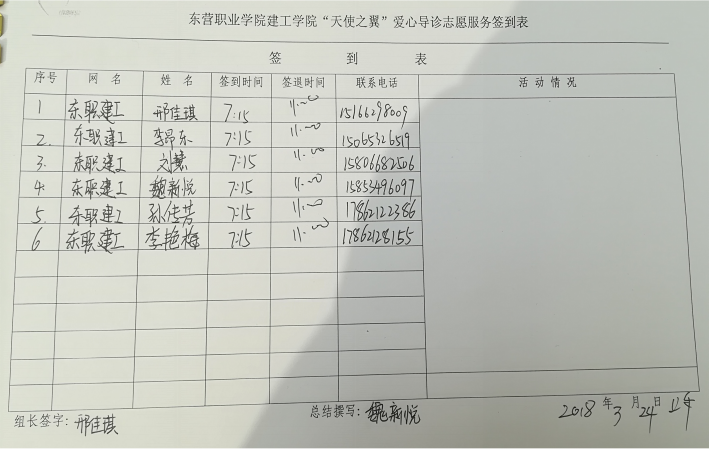 东营职业学院建工学院“天使之翼”爱心导诊志愿服务签到表
签 到 表
序号 网 名 姓 名 签到时间 签退时间 联系电话 活 动 情 况
1 东职建工 邢佳琪 7:15 11:00 15166298009
2. 东职建工 李昂东 7:15 11:00 15065326519
3. 东职建工 刘慧 7:15 11:00 15806682506
4. 东职建工 魏新悦 7:15 11:00 15853496097
5. 东职建工 孙佳芳 7:15 11:00 17862122386
6 东职建工 李艳梅 7:15 11:00 17862128155
组长签字: 邢佳琪 总结撰写: 魏新悦 2018 年 3 月 24 日 上午